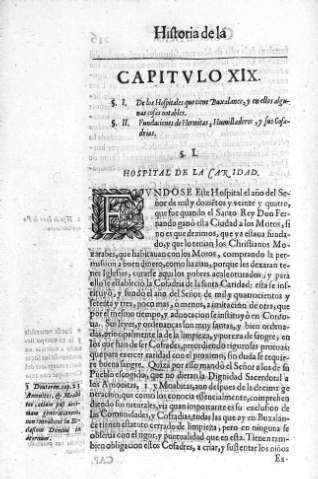 Historia de la
CAPITVLO XIX.
§. I. De los Hospitales que tiene Buxalance, y en ellos algunas cosas notables.
§. II. Fundaciones de Hermitas, Humilladeros, y sus Cofadrias.
§ I.
HOSPITAL DE LA CARIDAD.
FVNDOSE Este Hospital el año del Señor
de mil y dozientos y veinte y quatro,
que fue quando el Santo Rey Don Fernando
ganò esta Ciudad a los Moros, si
no es que dezimos, que ya estaua fundado,
y que lo tenian los Christianos Mozarabes,
que habitauan con los Moros, comprando la permission
a buen dinero, como hazian, porque les dexaran tener
Iglesias, curarse aqui los pobres
ello se estableciò la Cofadria de la santa Caridad; esta se instituyò,
y fundò el año del Señor de mil y quatrocientos y
setenta y tres, poco mas, ò menos, a imitacion de otra, que
por el mesmo tiempo, y aduocacion se instituyò en Cordoua.
Sus leyes, y ordenanças son muy santas, y bien ordenadas,
principalmente la de la limpieza, y pureza de sangre, en
los que han de ser Cofrades, precediendo rigurosas prueuas:
que para exercer caridad con el proximo, sin duda se requiere
buena sangre. Quizà por esso mandò el Señor a los de su
Pueblo escogido, que no dieran la Dignidad Sacerdotal à
los Amonitas, 1. y Moabitas, aun despues de la dezima generacion,
que como los conocia essencialmente, comprehendiendo
sus naturales, viò quan importante es la exclusion de
las Comunidades, y Cofadrias, todas las que ay en Buxalance
tienen estatuto cerrado de limpieza, pero en ninguna se
obserua con el rigor, y puntualidad que en esta. Tienen tambien
obligacion estos Cofadres, a criar, y sustentar los niños
Ex-
1 Deuteron. cap. 23
Amonites, & Moabites
etiam post decimam
generationem
non intrabunt in Ecclesiam
Domini in
æternum.